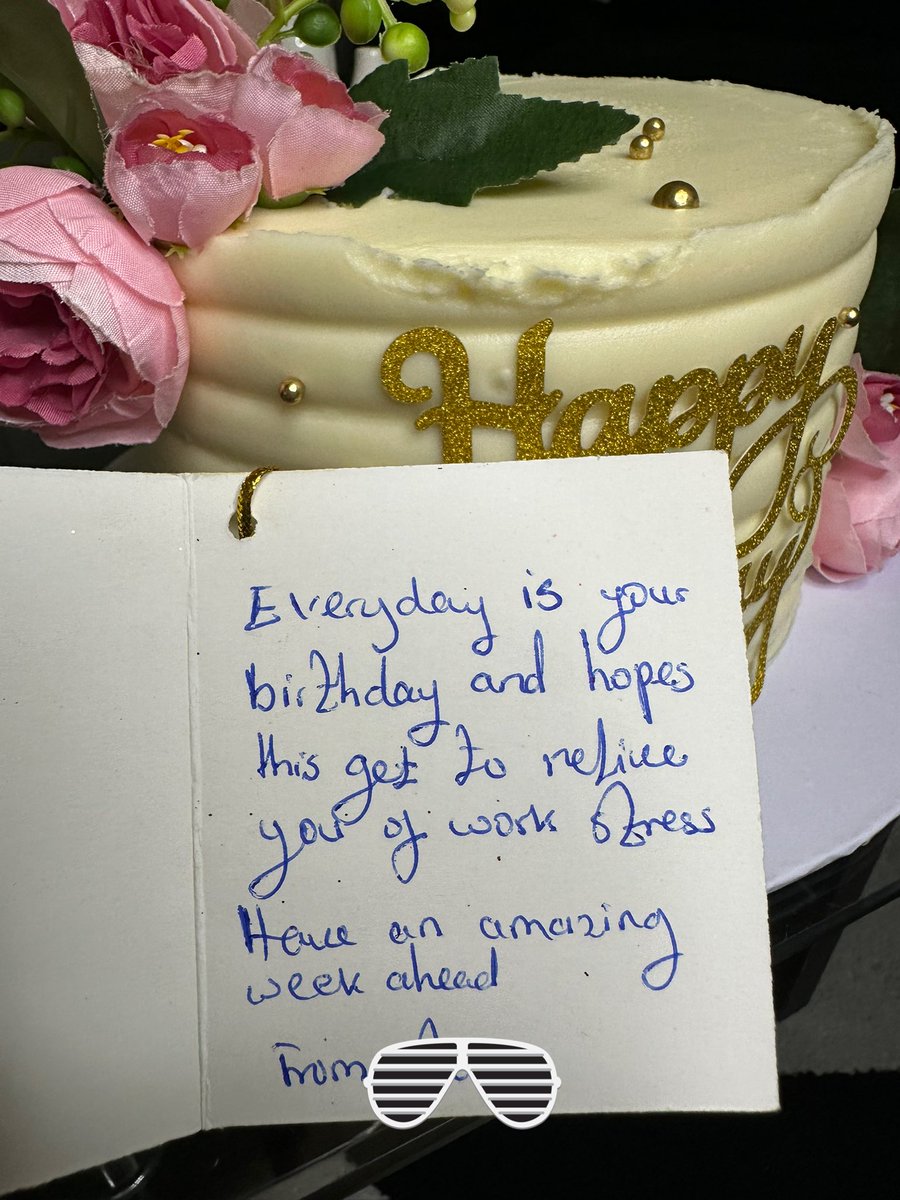 Happy
Everyday is your
birthday and hopes
this get to relive
you of work stress
Have an amazing
week ahead
From